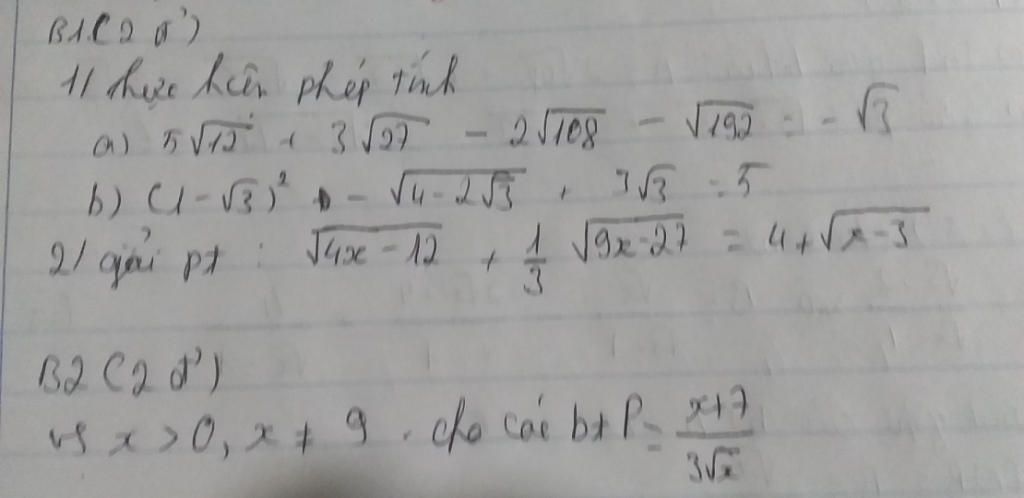 B1 (2 đ')
1/ thực hiện phép tính
a) 5√12 + 3√27 - 2√108 - √192 = -√3
b) (1 - √3)² - √(4 - 2√3) + 3√3 = 5
2/ giải pt : √(4x - 12) + 1/3 √(9x - 27) = 4 + √(x - 3)
B2 (2 đ')
vs x > 0, x ≠ 9. cho các bt P = (x+7)/(3√x)